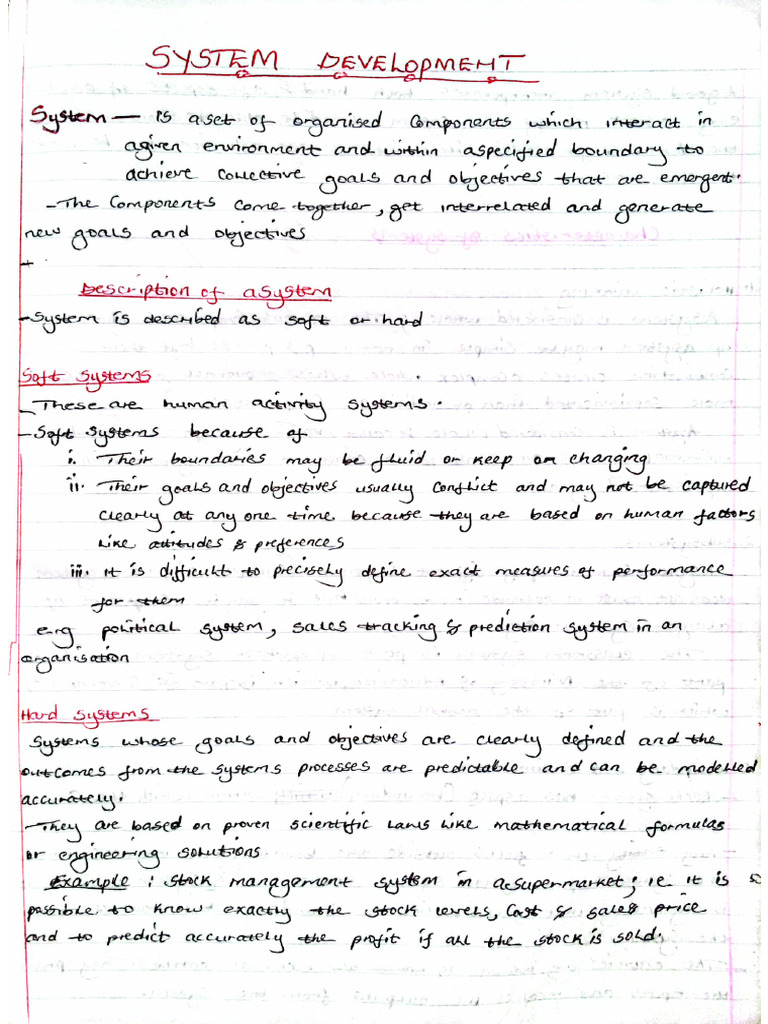 SYSTEM DEVELOPMENT
System — is a set of organised components which interact in
a given environment and within a specified boundary to
achieve collective goals and objectives that are emergent.
- The Components come together, get interrelated and generate
new goals and objectives
Description of a System
- System is described as soft or hard
Soft Systems
- These are human activity systems.
- Soft systems because of
i. Their boundaries may be fluid or keep on changing
ii. Their goals and objectives usually conflict and may not be captured
clearly at any one time because they are based on human factors
like attitudes & preferences
iii. It is difficult to precisely define exact measures of performance
for them
e.g political system, sales tracking & prediction system in an
organisation
Hard Systems
Systems whose goals and objectives are clearly defined and the
outcomes from the systems processes are predictable and can be modelled
accurately.
- They are based on proven scientific laws like mathematical formulas
or engineering solutions
Example : stock management system in a supermarket; ie it is
possible to know exactly the stock levels, Cost & sales price
and to predict accurately the profit if all the stock is sold.